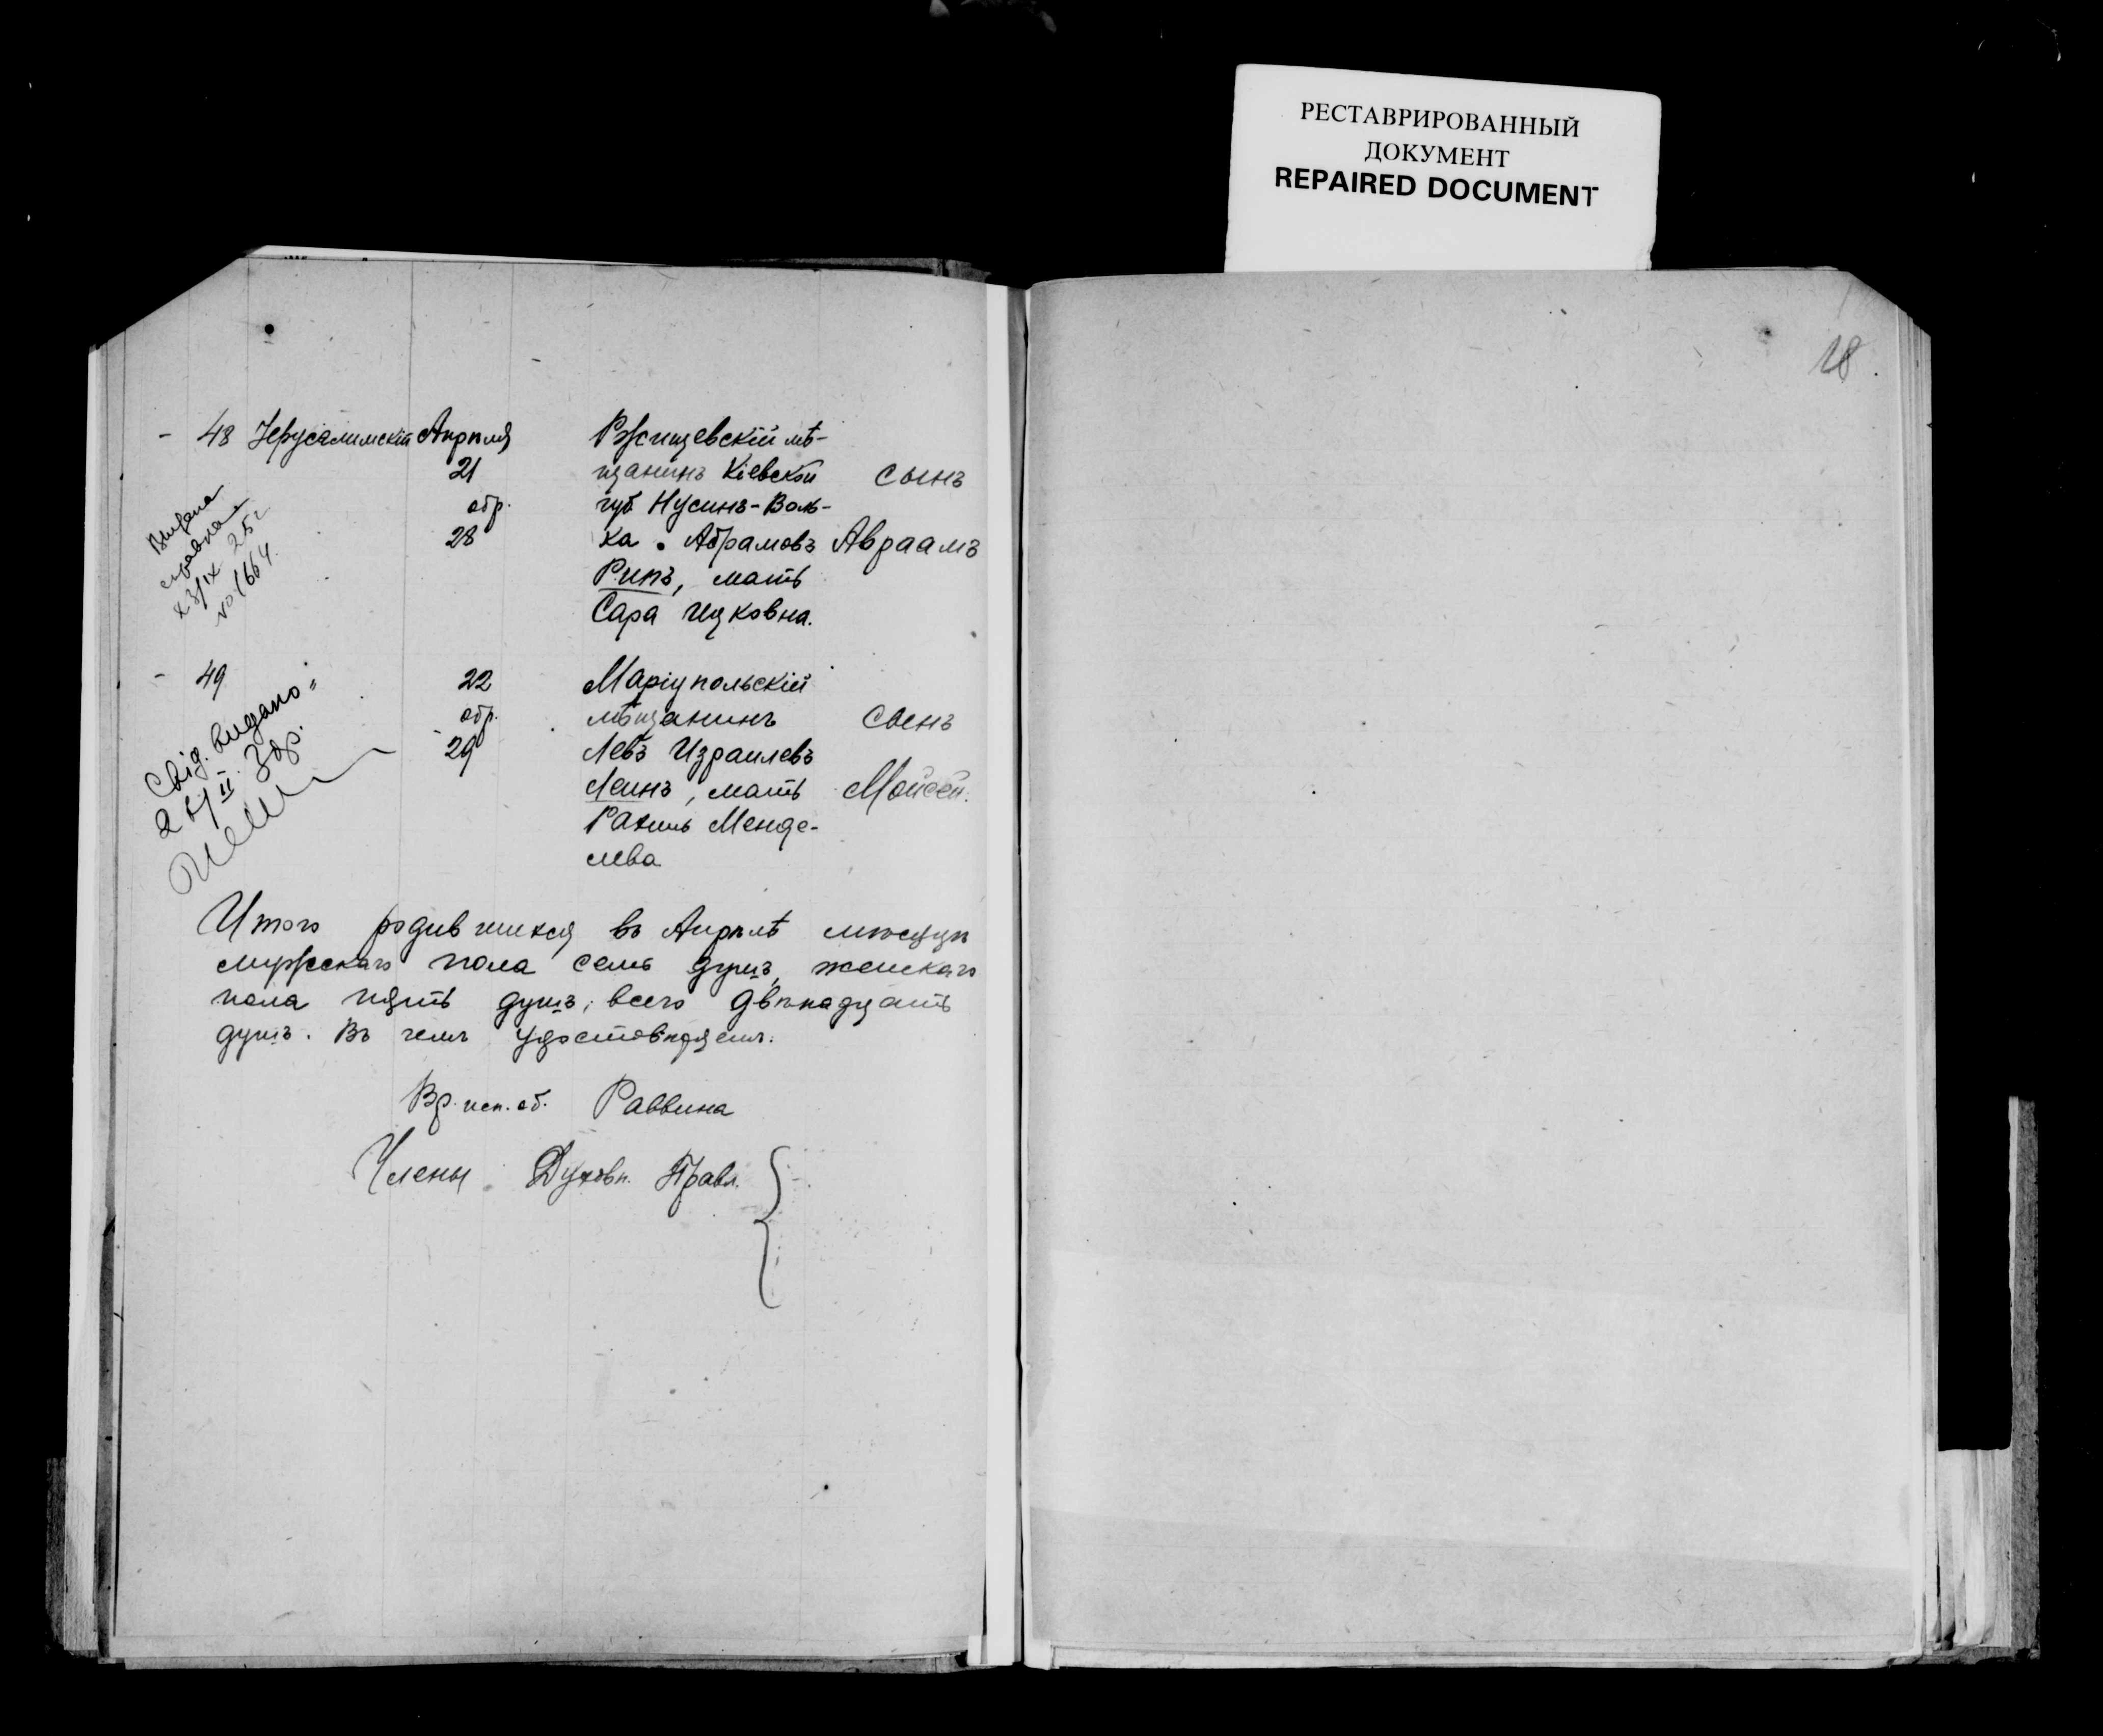 РЕСТАВРИРОВАННЫЙ
ДОКУМЕНТ
REPAIRED DOCUMENT
18
- 48 Іерусалимскій Апрѣля Ржищевскій мѣ-
21 щанинъ Кіевской сынъ
обр. губ Нусинъ-Воль-
28 ка Абрамовъ Авраамъ
Рипъ, мать
Сара Ицковна.
Выдана
справка
23/IX 25г
№ 1664.
- 49 22 Маріупольскій
обр. мѣщанинъ сынъ
29 Левъ Израилевъ
Леинъ, мать Мойсей.
Рахиль Менде-
лева
Свід. видано
2 II 3др.
Итого родившихся въ Апрѣлѣ мѣсяцѣ
мужескаго пола семь душъ, женскаго
пола пять душъ, всего двѣнадцать
душъ. Въ чемъ удостовѣряемъ.
Вр. исп. об. Раввина
Члены Духовн. Правл.